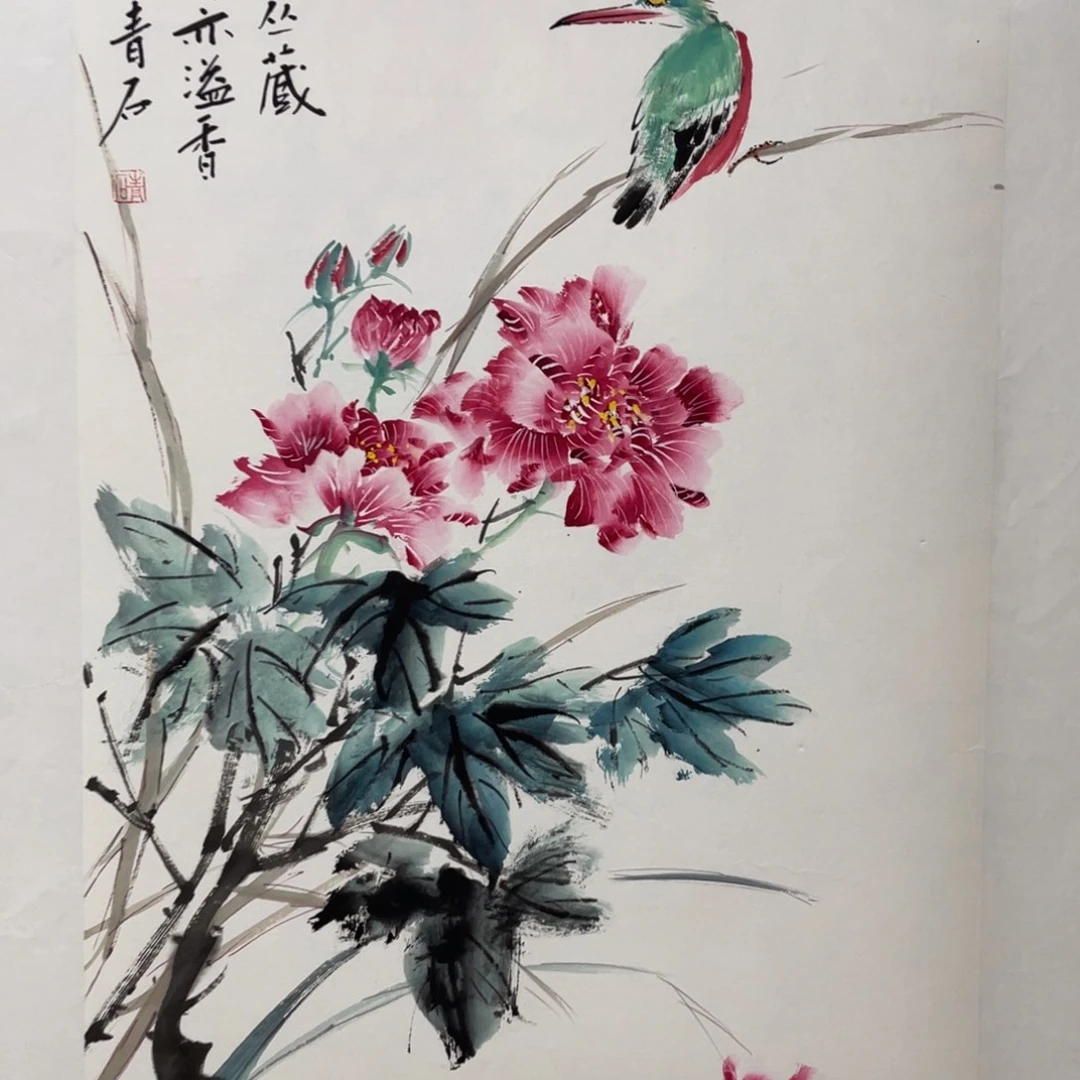 丛藏
亦溢香
青石